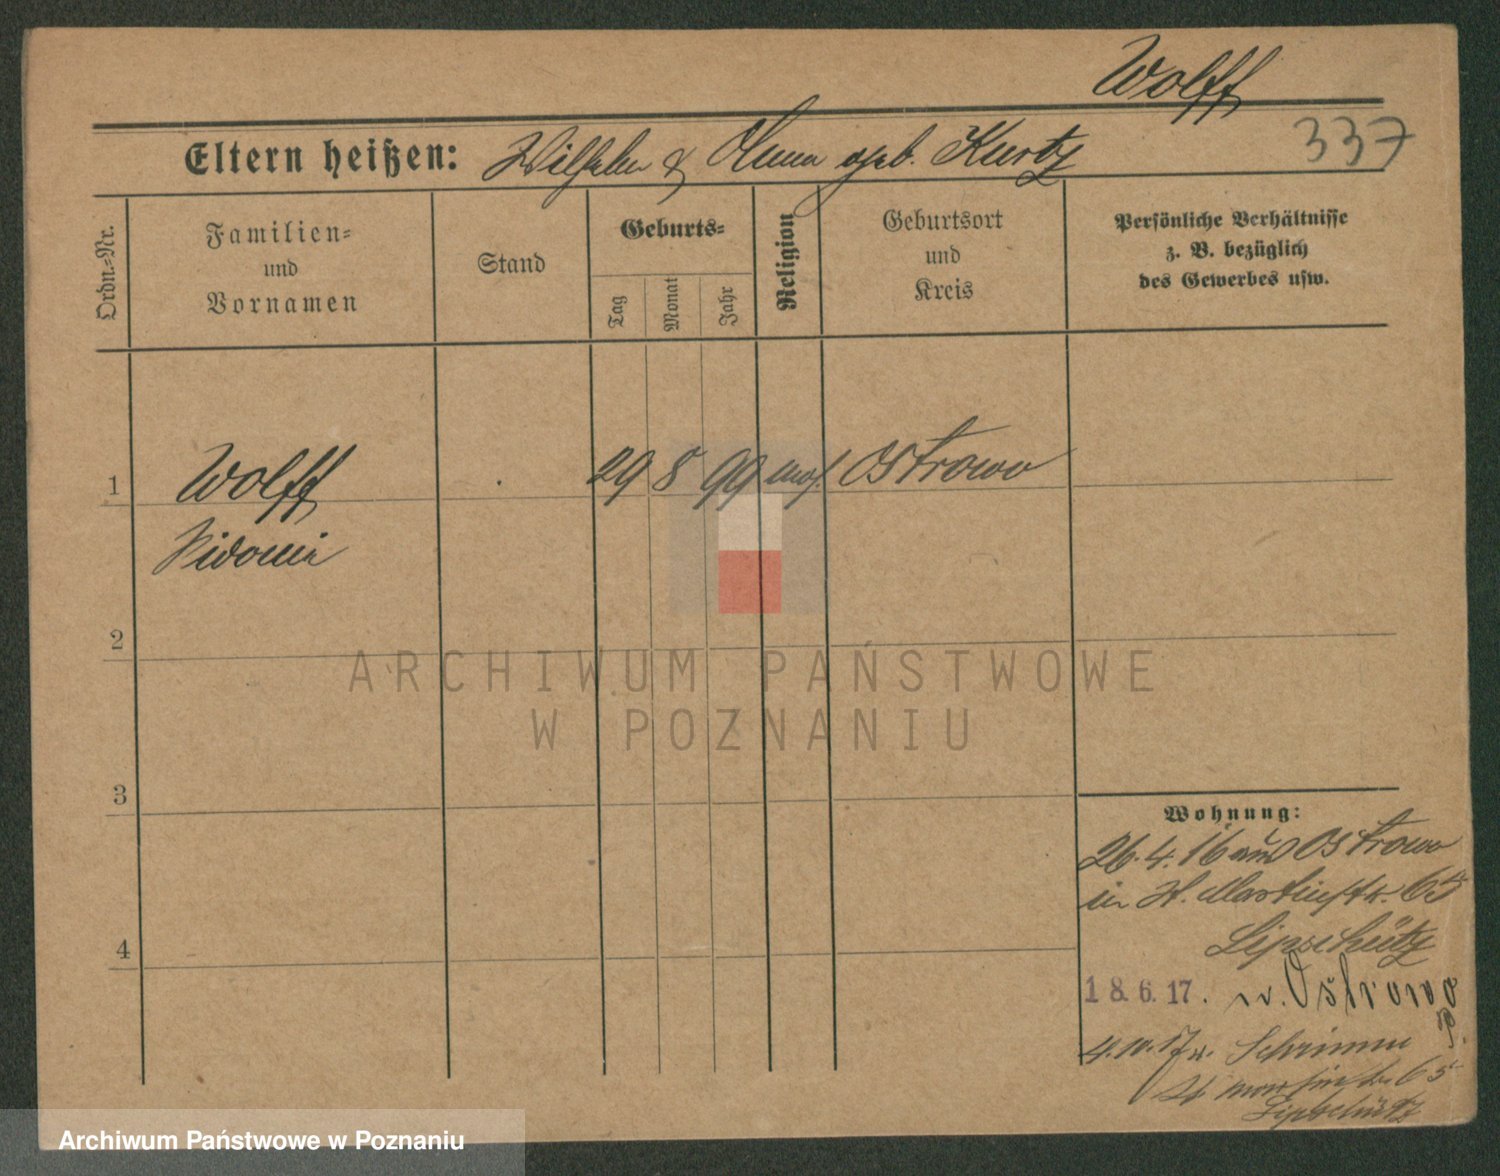 Wolff
337
Eltern heißen: Wilhelm & geb. Kurtz
Ordn.-Nr.
Familien-
und
Vornamen
Stand
Geburts-
Tag
Monat
Jahr
Religion
Geburtsort
und
Kreis
Persönliche Verhältnisse
z. B. bezüglich
des Gewerbes usw.
1
Wolff
29 8 99 mos. Ostrowo
2
3
4
Wohnung:
26.4.16 aus Ostrowo
in St. Martinstr. 65
Lipschütz
18.6.17. n. Ostrowo
4.10.17 Schrimm
St Martinstr 65
Lipschütz
ARCHIWUM PAŃSTWOWE
W POZNANIU
Archiwum Państwowe w Poznaniu